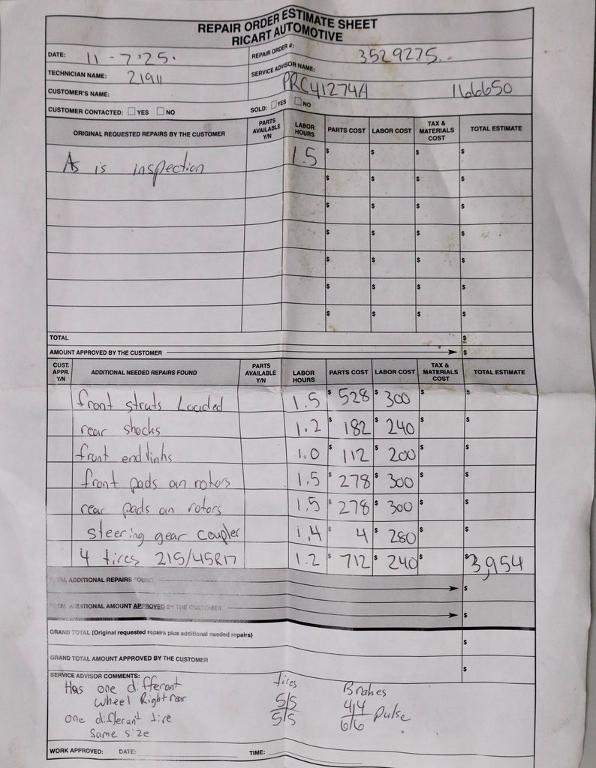 REPAIR ORDER ESTIMATE SHEET
RICART AUTOMOTIVE
DATE: 11-7'25. REPAIR ORDER #: 3529275..
TECHNICIAN NAME: 21911 SERVICE ADVISOR NAME:
CUSTOMER'S NAME: PRC41274A 166650
CUSTOMER CONTACTED: YES NO SOLD: YES NO
ORIGINAL REQUESTED REPAIRS BY THE CUSTOMER PARTS AVAILABLE Y/N LABOR HOURS PARTS COST LABOR COST TAX & MATERIALS COST TOTAL ESTIMATE
As is inspection 1.5 $ $ $ $
$ $ $ $
$ $ $ $
$ $ $ $
$ $ $ $
$ $ $ $
$ $ $ $
TOTAL $
AMOUNT APPROVED BY THE CUSTOMER $
CUST. APPR. Y/N ADDITIONAL NEEDED REPAIRS FOUND PARTS AVAILABLE Y/N LABOR HOURS PARTS COST LABOR COST TAX & MATERIALS COST TOTAL ESTIMATE
front struts Loaded 1.5 $528 $300 $ $
rear shocks 1.2 $182 $240 $ $
front endlinks 1.0 $112 $200 $ $
front pads an rotors 1.5 $278 $300 $ $
rear pads an rotors 1.5 $278 $300 $ $
steering gear coupler 1.4 $4 $280 $ $
4 tires 215/45R17 1.2 $712 $240 $ $3,954
TOTAL ADDITIONAL REPAIRS FOUND $
TOTAL ADDITIONAL AMOUNT APPROVED BY THE CUSTOMER $
GRAND TOTAL (Original requested repairs plus additional needed repairs) $
GRAND TOTAL AMOUNT APPROVED BY THE CUSTOMER $
SERVICE ADVISOR COMMENTS: tires Brakes
Has one different
wheel Right rear 5/5 4/4
one differant tire 5/5 6/6 pulse
Same size
WORK APPROVED: DATE: TIME: